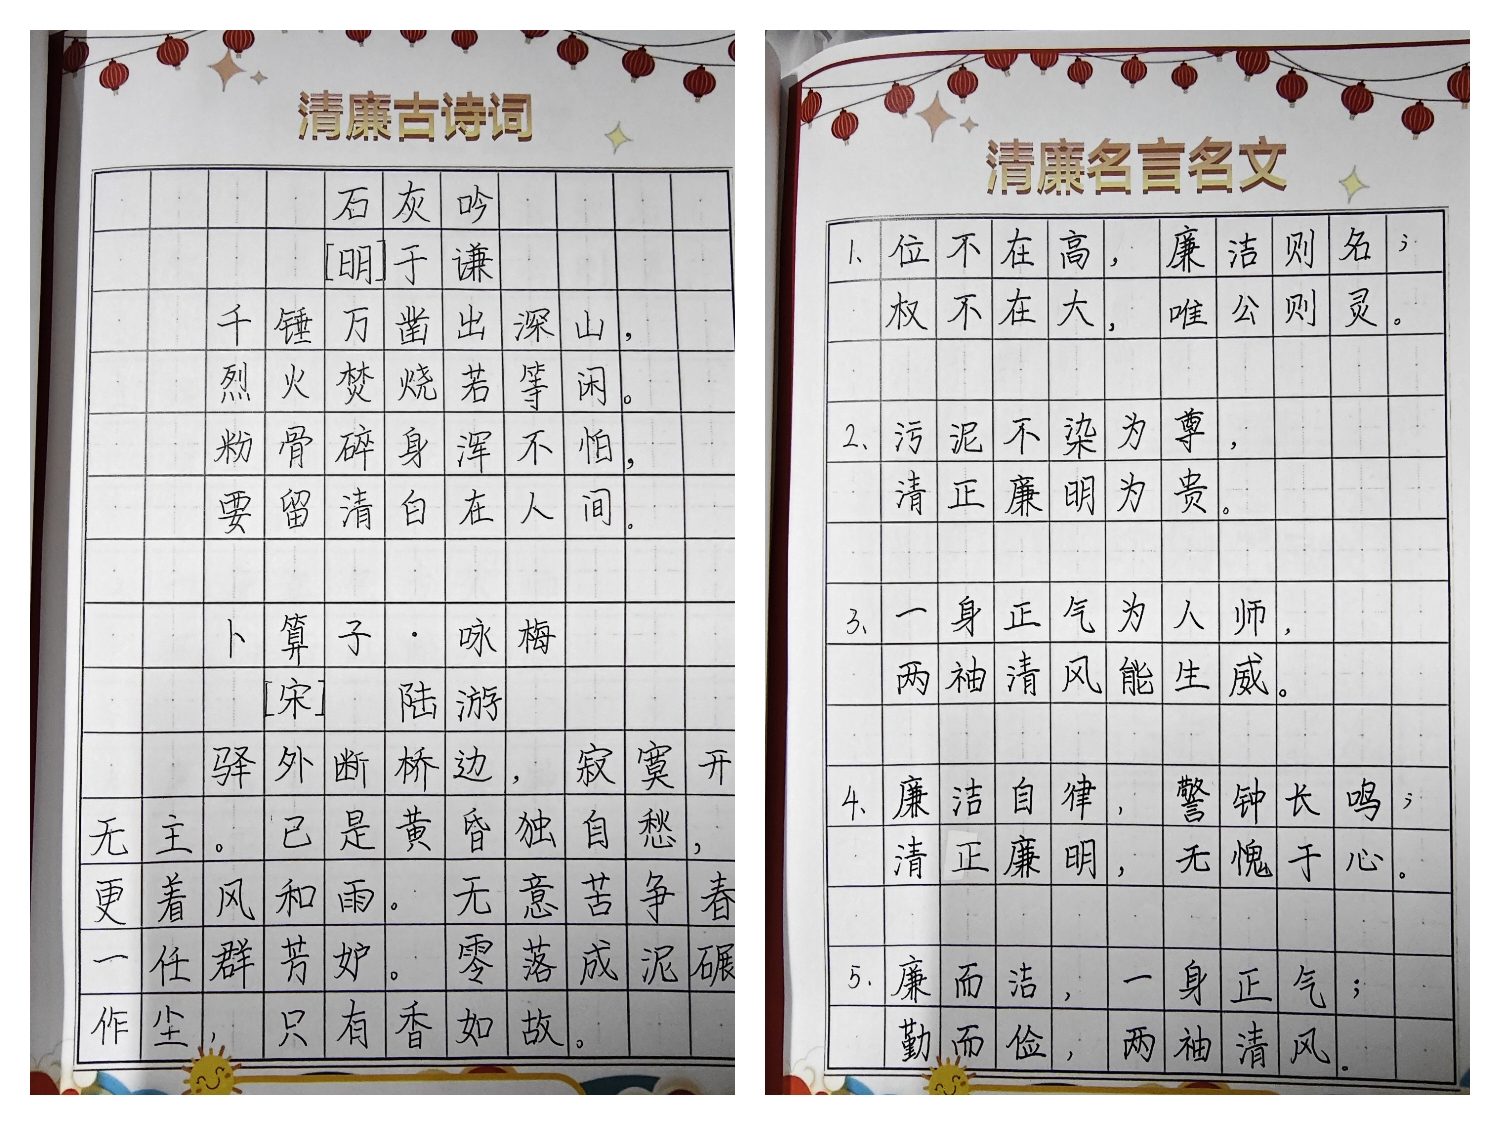 清廉古诗词
石灰吟
[明]于谦
千锤万凿出深山，
烈火焚烧若等闲。
粉骨碎身浑不怕，
要留清白在人间。
卜算子·咏梅
[宋] 陆游
驿外断桥边，寂寞开
无主。已是黄昏独自愁，
更着风和雨。无意苦争春
一任群芳妒。零落成泥碾
作尘，只有香如故。
清廉名言名文
1、位不在高，廉洁则名；
权不在大，唯公则灵。
2、污泥不染为尊，
清正廉明为贵。
3、一身正气为人师，
两袖清风能生威。
4、廉洁自律，警钟长鸣；
清正廉明，无愧于心。
5、廉而洁，一身正气；
勤而俭，两袖清风。